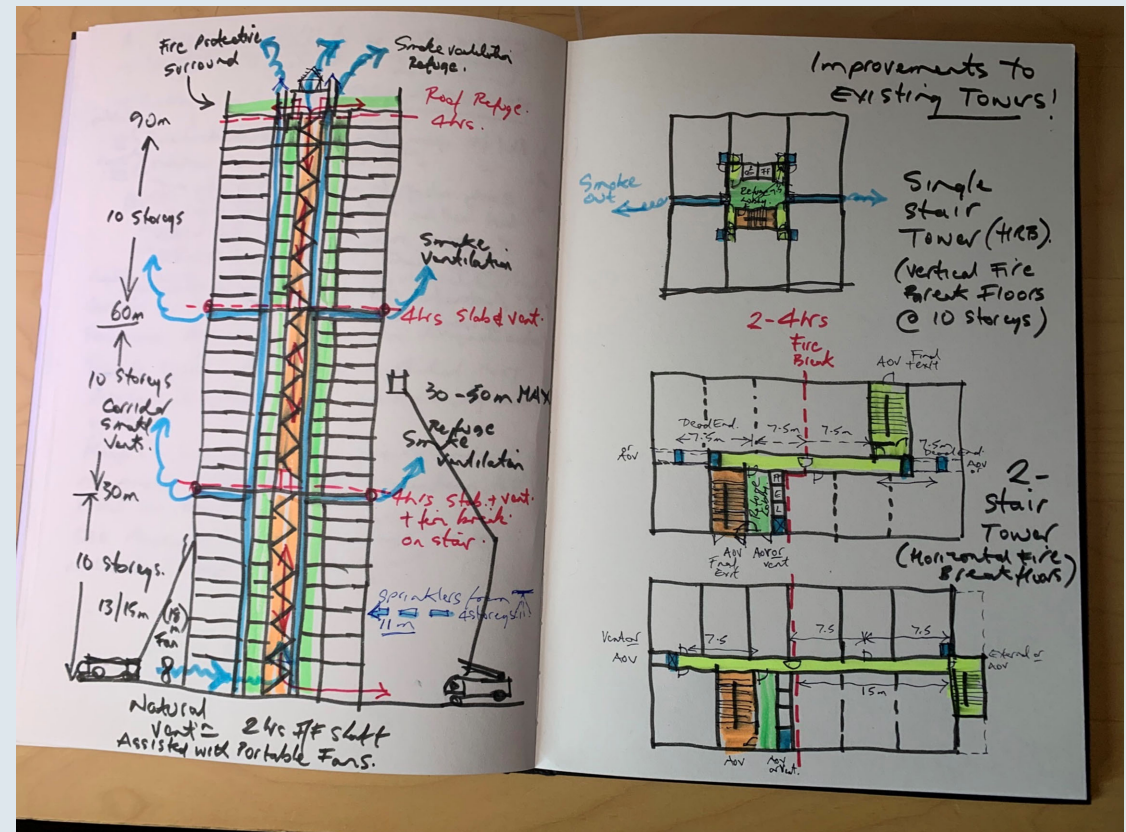 Fire Protective
Surround
Smoke ventilation
Refuge.
Roof Refuge.
4hrs.
90m
10 Storeys
Smoke
Ventilation
60m
4hrs Slab & vent.
10 Storeys
30-50m MAX
Corridor
Smoke
Vents.
Refuge
Smoke
Ventilation
30m
4hrs slab + vent.
+ fire break
on stair.
10 Storeys.
13/15m
(18)
m
Fan
sprinklers from
4 storeys
11m
Natural
Vent
2 hrs F/F shaft
Assisted with Portable Fans.
Improvements to
Existing Towers!
Smoke
out
Refuge
Lobby
Single
Stair
Tower (HRB).
(Vertical Fire
Break Floors
@ 10 Storeys)
2-4hrs
Fire
Break
AOV
Final
exit
Dead End.
7.5m
7.5m
7.5m
7.5m
Dead End.
or
AOV
AOV
or
Refuge
Lobby
AOV
Final
Exit
AOV or
vent
2-
Stair
Tower
(Horizontal Fire
Break floors)
Vent or
AOV
7.5
7.5
7.5
External or
AOV
15m
AOV
AOV
or vent.